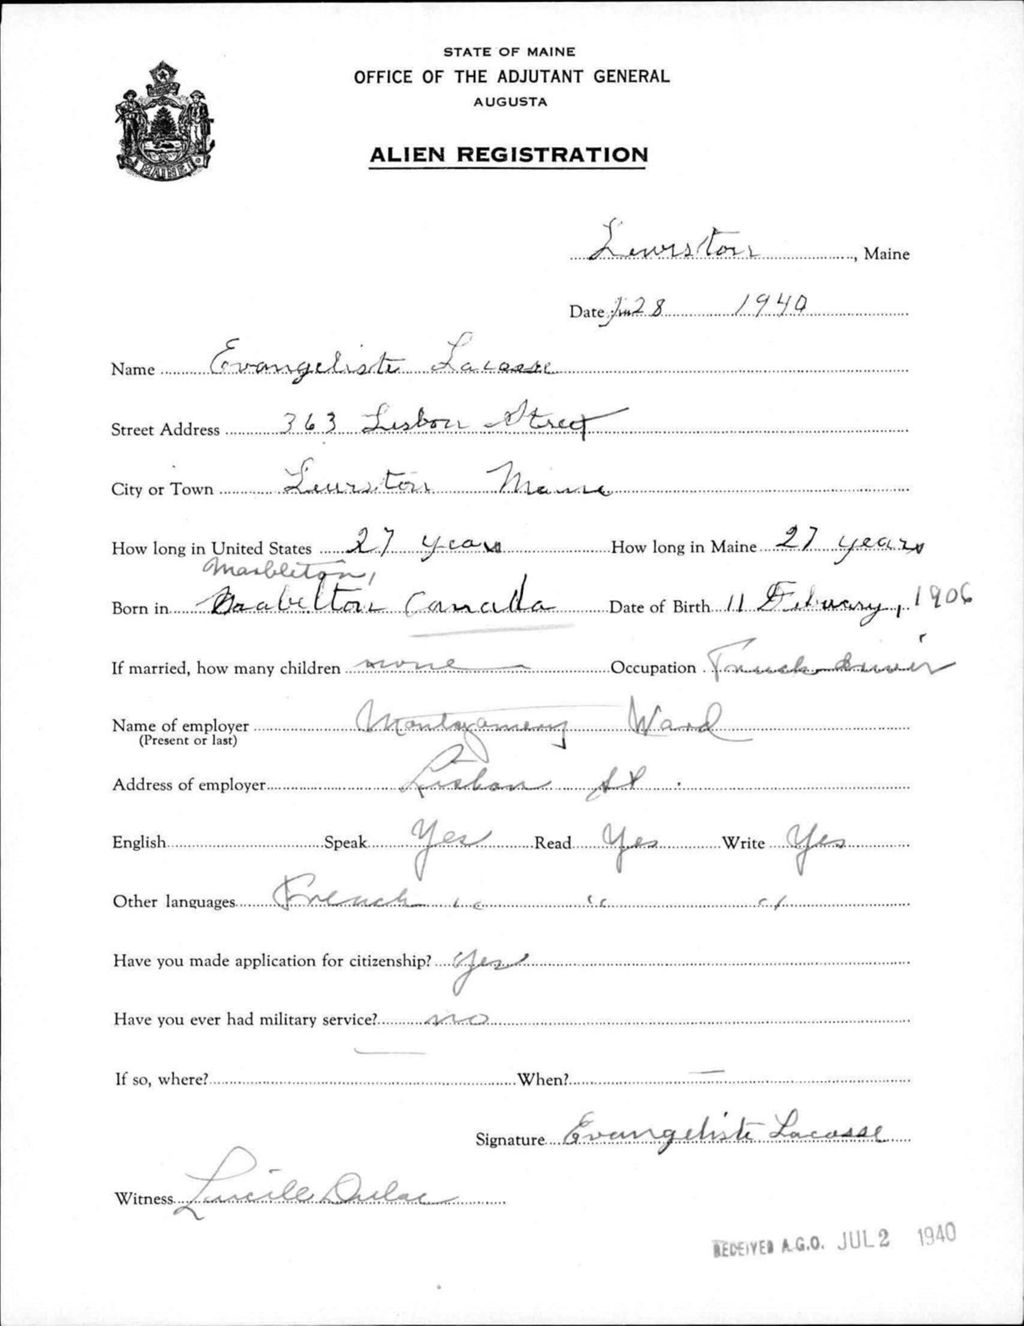 STATE OF MAINE
OFFICE OF THE ADJUTANT GENERAL
AUGUSTA
ALIEN REGISTRATION
MAINE
Lewiston, Maine
Date Jun 28 1940
Name Evangeliste Lacasse
Street Address 363 Lisbon Street
City or Town Lewiston Maine
How long in United States 27 years How long in Maine 27 years
Marbleton,
Born in Canada Date of Birth 11 February, 1906
If married, how many children none Occupation Truck driver
Name of employer Montgomery Ward
(Present or last)
Address of employer Lisbon St.
English Speak Yes Read Yes Write Yes
Other languages French " " "
Have you made application for citizenship? Yes
Have you ever had military service? no
If so, where? — When? —
Signature Evangeliste Lacasse
Witness Lucille Dulac
RECEIVED A.G.O. JUL 2 1940